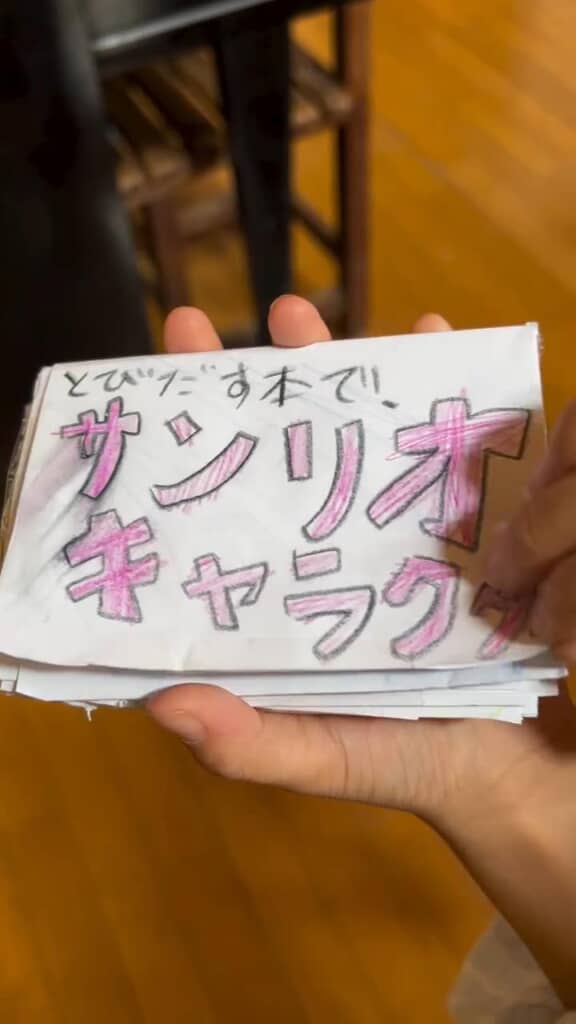 とびだす本で!.
サンリオ
キャラクタ